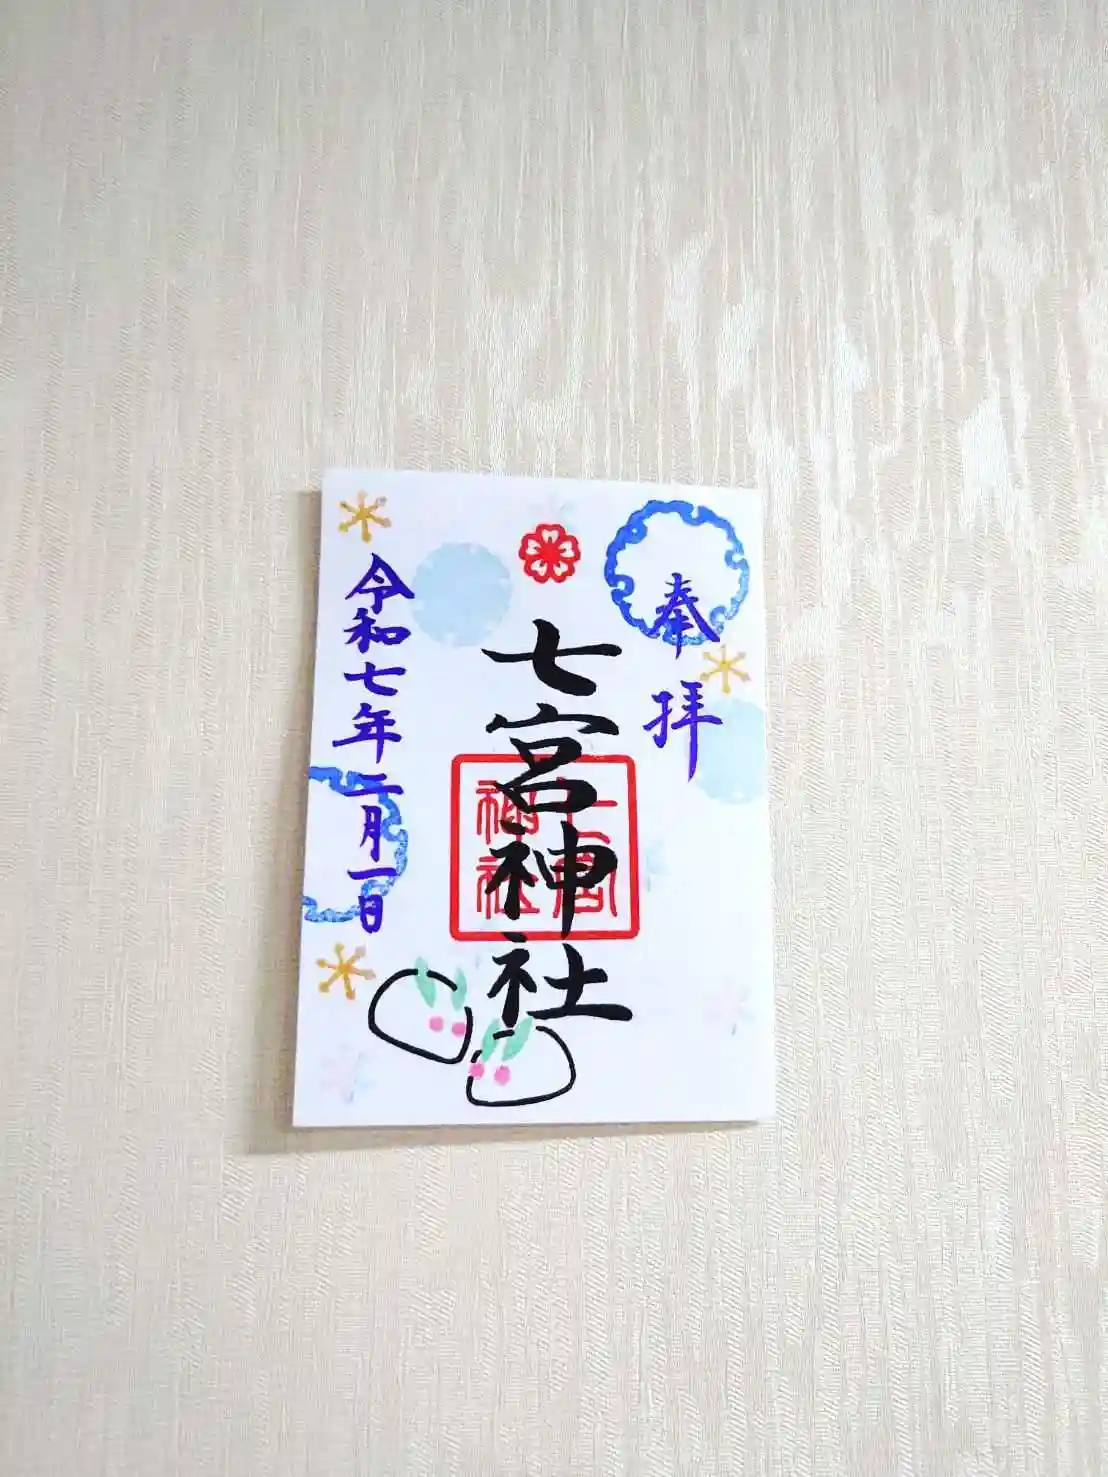 奉拝
七宮神社
七宮
神社
令和七年二月一日